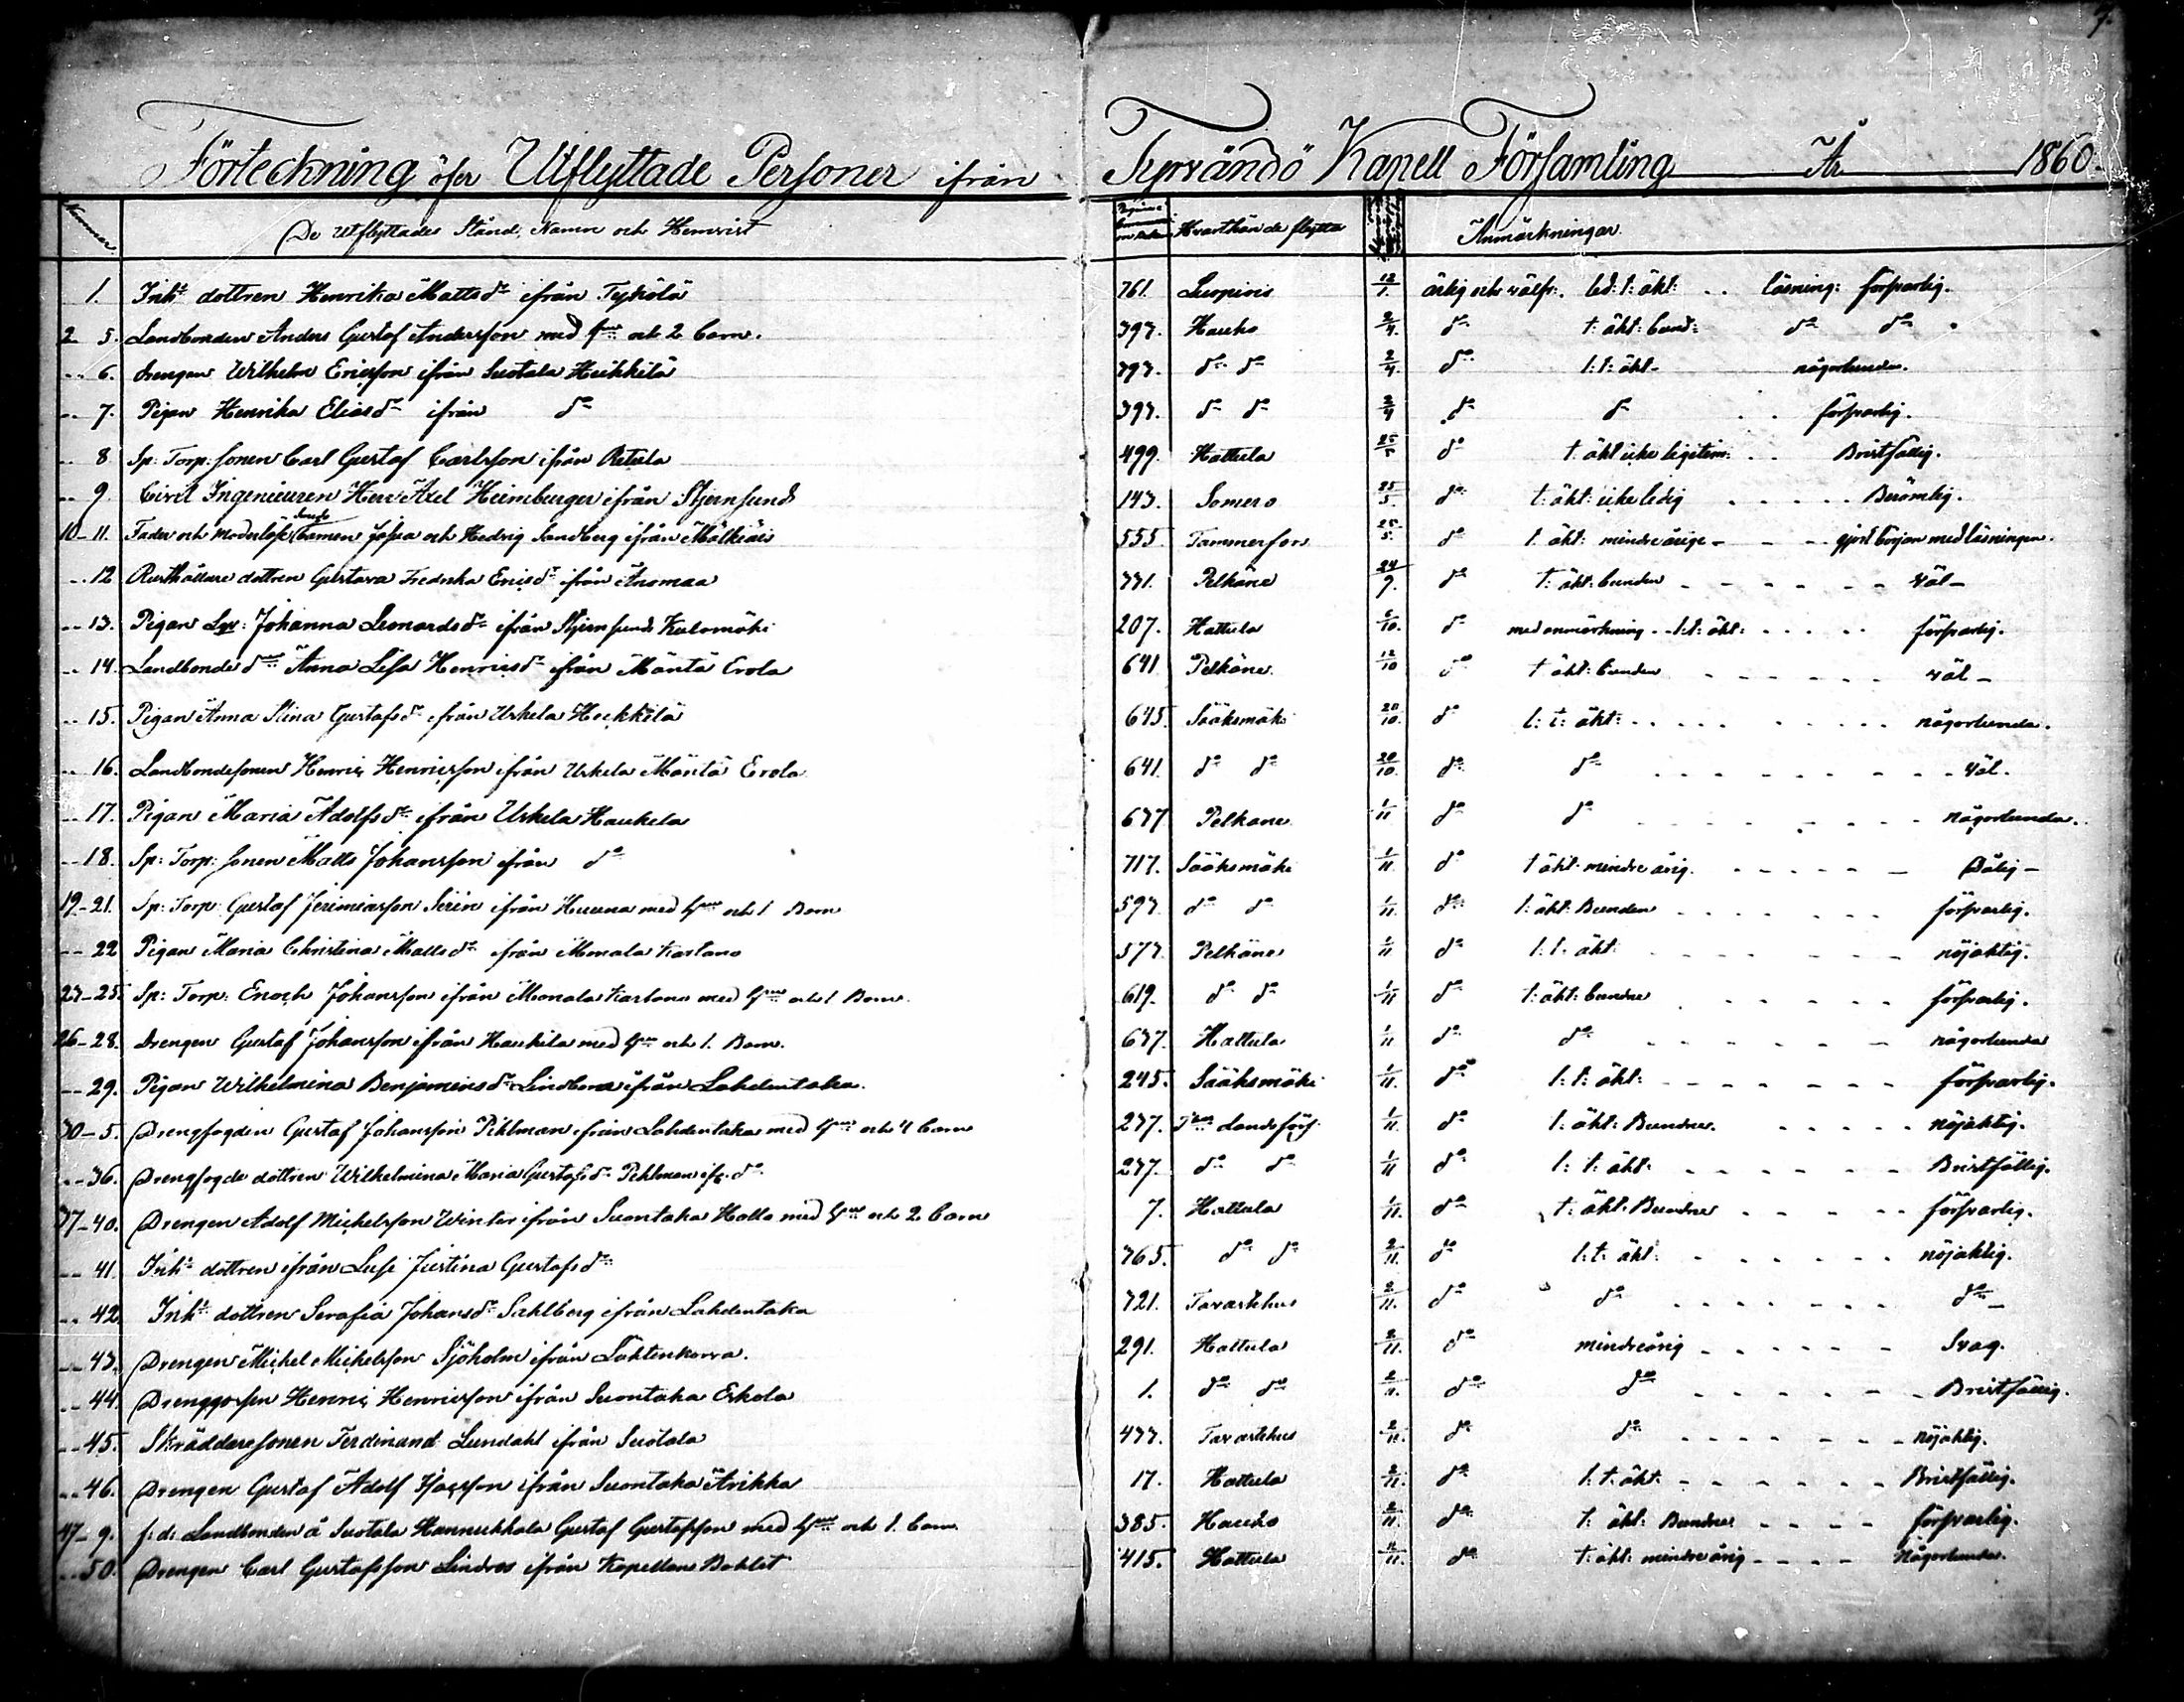 7.
Förteckning öfer Utflyttade Personer ifrån Tyrvändö Kapell Församling År 1860.
Nummer De Utflyttades Stånd, Namn och Hemvist Hvarthän de flytta Anmärkningar.
1. Inhs dottren Henrika Mattsdr ifrån Tyhölä 761. Luopiois 12/1. ärlig och välfr. led. t. äkt: läsning: försvarlig.
2 5. Landbonden Anders Gustaf Andersson med hu och 2 barn. 393. Hauho 2/4. do t: äkt: bund: do do
6. drengen Wilhelm Ericsson ifrån Suotala Heikkilä 393. do do 2/4. do l: t: äkt- någorlunda.
7. Pigan Henrika Eliasdr ifrån do 393. do do 2/4 do do försvarlig.
8 Sp: Torp: sonen Carl Gustaf Carlsson ifrån Retula 499. Hattula 25/5 do t: äkt icke legitim: Bristfällig.
9. Civil Ingenieuren Herr Axel Heimburger ifrån Stjernsund 143. Somero 25/5. do t: äkt: icke ledig Berömlig.
10-11. Fader och Moderlösa barnen Josua och Hedvig Sandberg ifrån Mälkiäis 555. Tammerfors 25/5. do t. äkt: mindre årige - gjort början med läsningen.
12 Rusthållare dottren Gustava Fredrika Ericsdr ifrån Anomaa 331. Pelkäne 24/9. do t: äkt: bunden väl-
13. Pigan Johanna Leonardsdr ifrån Stjernsunds Kulomäki 207. Hattula 6/10. do med anmärkning l: t: äkt: försvarlig.
14. Landbonde dr Anna Lisa Henricsdr ifrån Mäntä Erola 641 Pelkäne 12/10 do t äkt: bunden väl-
15. Pigan Anna Stina Gustafsdr ifrån Uskela Heikkilä 645. Sääksmäki 20/10. do l: t: äkt: någorlunda.
16. Landbondesonen Henric Henricsson ifrån Uskela Mäntä Erola 641. do do 20/10. do do väl.
17. Pigan Maria Adolfsdr ifrån Uskela Haukela 637 Pelkäne 1/11 do do någorlunda.
18. Sp: Torp: sonen Matts Johansson ifrån do 717. Sääksmäki 1/11. do t äkt mindre årig. Dålig-
19-21. Sp: Torp: Gustaf Jeremiasson Sirén ifrån Huuna med hu och 1 Barn 593. do do 1/11. do t: äkt: Bunden försvarlig.
22 Pigan Maria Christina Mattsdr ifrån Monala Kartano 573. Pelkäne 1/11 do l: t. äkt: nöjaktig.
23-25. Sp: Torp: Enoch Johansson ifrån Monala Kartano med hu och 1 Barn. 619. do do 1/11 do t: äkt: bundne försvarlig.
26-28. drengen Gustaf Johansson ifrån Haukila med hu och 1. Barn. 637. Hattula 1/11 do do någorlunda
29. Pigan Wilhelmina Benjaminsdr ifrån Lahdentaka. 245. Sääksmäki 1/11. do l: t: äkt: försvarlig.
30-5. Drengfogden Gustaf Johansson Pihlman ifrån Lahdentaka med hu och 4 barn 237. Landsförs. 1/11. do t: äkt: Bundne. nöjaktig.
36. Drengfogde dottren Wilhelmina Maria Gustafsdr Pihlman ifr. do 237. do do 1/11 do l: t: äkt: Bristfällig.
37-40. Drengen Adolf Michelsson Winter ifrån Suontaka Hollo med hu och 2 barn 7. Hattula 1/11. do t: äkt: Bundne försvarlig.
41. Inhs dottren ifrån Lusi Justina Gustafsdr 365. do do 2/11. do l: t: äkt: nöjaktig.
42 Inhs dottren Serafia Johansdr Sahlberg ifrån Lahdentaka 321. Tavastehus 2/11. do do do
43. Drengen Michel Michelsson Sjöholm ifrån Lahtenkorva. 291. Hattula 2/11. do mindreårig Svag.
44. Drenggossen Henric Henricsson ifrån Suontaka Erkola 1. do do 2/11. do do Bristfällig.
45. Skräddaresonen Ferdinand Lundahl ifrån Suotala 433. Tavastehus 2/11. do do nöjaktig.
46. Drengen Gustaf Adolf Isacsson ifrån Suontaka Arikka 17. Hattula 2/11. do l: t: äkt. Bristfällig.
47-9. f: d: Landbonden å Suotala Hannukkala Gustaf Gustafsson med hu och 1. barn 385. Hauho 2/11. do t: äkt: Bundne försvarlig.
50. Drengen Carl Gustafsson Lindros ifrån Kapellans Bohlet 415. Hattula 11/11. do t: äkt: mindre årig Någorlunda.